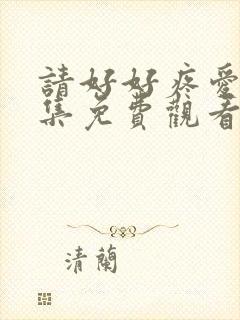 請好好疼愛
集免費觀看
清蘭